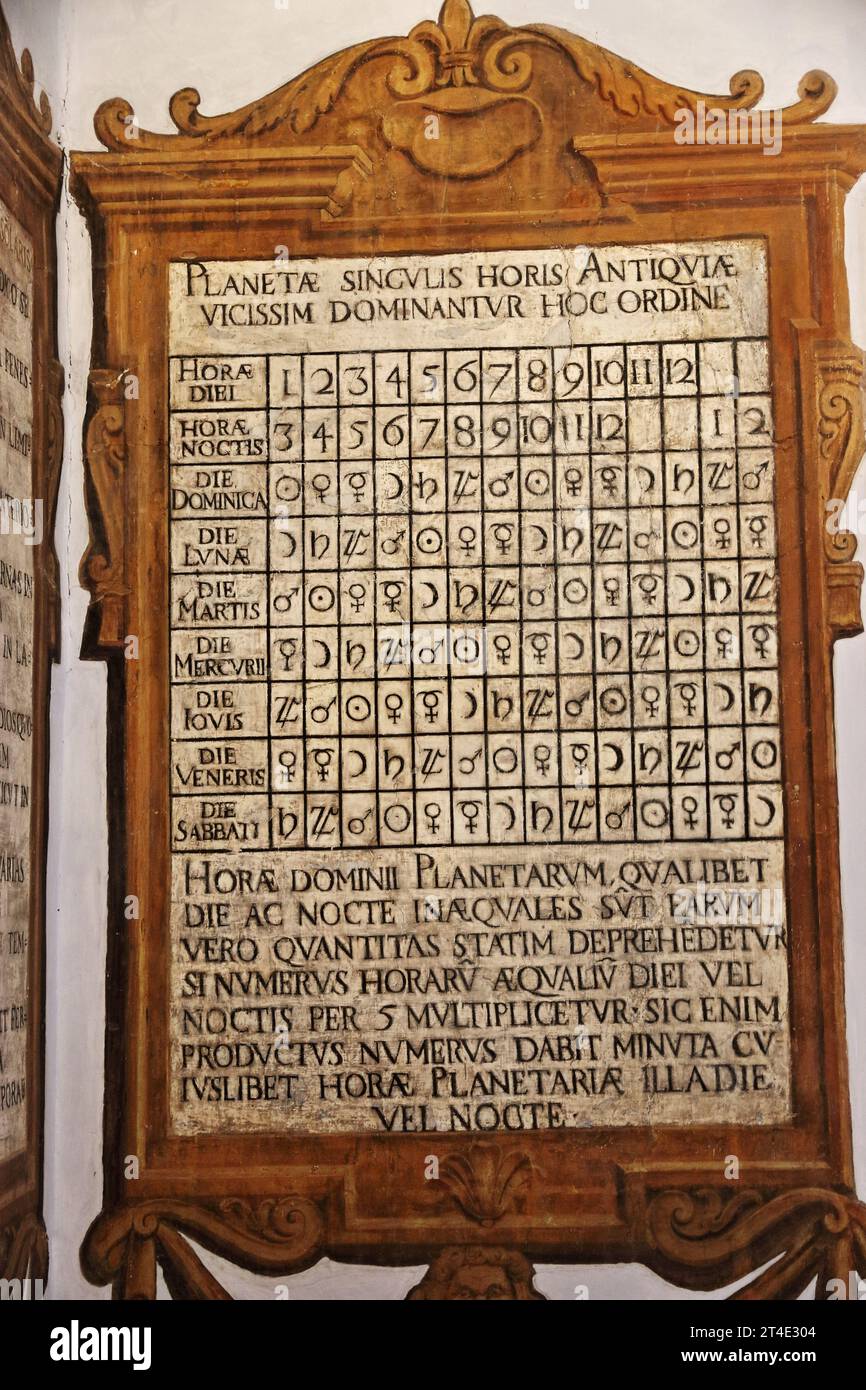 PLANETÆ SINGVLIS HORIS ANTIQVIÆ
VICISSIM DOMINANTVR HOC ORDINE
HORÆ DIEI 1 2 3 4 5 6 7 8 9 10 11 12
HORÆ NOCTIS 3 4 5 6 7 8 9 10 11 12 1 2
DIE DOMINICA ☉ ♀ ☿ ☽ ♄ ♃ ♂ ☉ ♀ ☿ ☽ ♄ ♃ ♂
DIE LVNÆ ☽ ♄ ♃ ♂ ☉ ♀ ☿ ☽ ♄ ♃ ♂ ☉ ♀ ☿
DIE MARTIS ♂ ☉ ♀ ☿ ☽ ♄ ♃ ♂ ☉ ♀ ☿ ☽ ♄ ♃
DIE MERCVRII ☿ ☽ ♄ ♃ ♂ ☉ ♀ ☿ ☽ ♄ ♃ ☉ ♀ ☿
DIE IOVIS ♃ ♂ ☉ ♀ ☿ ☽ ♄ ♃ ♂ ☉ ♀ ☿ ☽ ♄
DIE VENERIS ♀ ☿ ☽ ♄ ♃ ♂ ☉ ♀ ☿ ☽ ♄ ♃ ♂ ☉
DIE SABBATI ♄ ♃ ♂ ☉ ♀ ☿ ☽ ♄ ♃ ♂ ☉ ♀ ☿ ☽
HORÆ DOMINII PLANETARVM, QVALIBET
DIE AC NOCTE INÆQVALES SŨT EARVM
VERO QVANTITAS STATIM DEPREHEDETVR
SI NVMERVS HORARŨ ÆQVALIŨ DIEI VEL
NOCTIS PER 5 MVLTIPLICETVR· SIC ENIM
PRODVCTVS NVMERVS DABIT MINVTA CV
IVSLIBET HORÆ PLANETARIÆ ILLA DIE
VEL NOCTE·
alamy
Image ID: 2T4E304
www.alamy.com